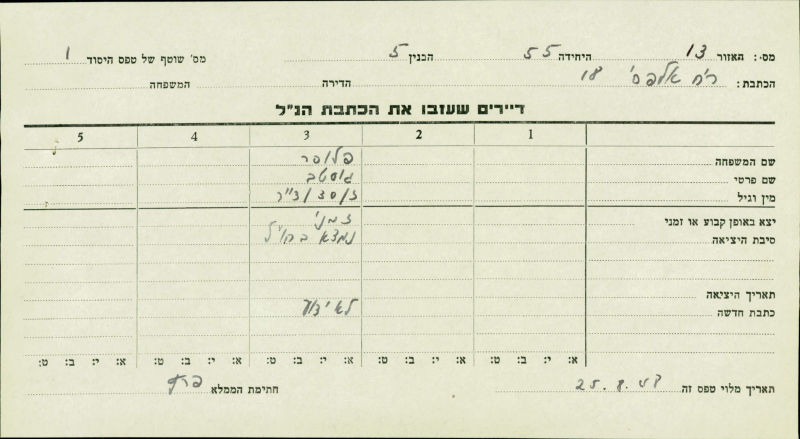 מס׳ : האזור 13 היחידה 55 הבנין 5 מס׳ שוטף של טפס היסוד 1
הכתבת : רח׳ אלפסי 18 הדירה המשפחה
דיירים שעזבו את הכתבת הנ״ל
1 2 3 4 5
שם המשפחה פלופר
שם פרטי גוסטב
מין וגיל ז/
יצא באופן קבוע או זמני זמני
סיבת היציאה נמצא בחו״ל
תאריך היציאה
כתבת חדשה לא ידוע
א: י: ב: ט: א: י: ב: ט: א: י: ב: ט: א: י: ב: ט: א: י: ב: ט:
תאריך מלוי טפס זה 25.8.43 חתימת הממלא